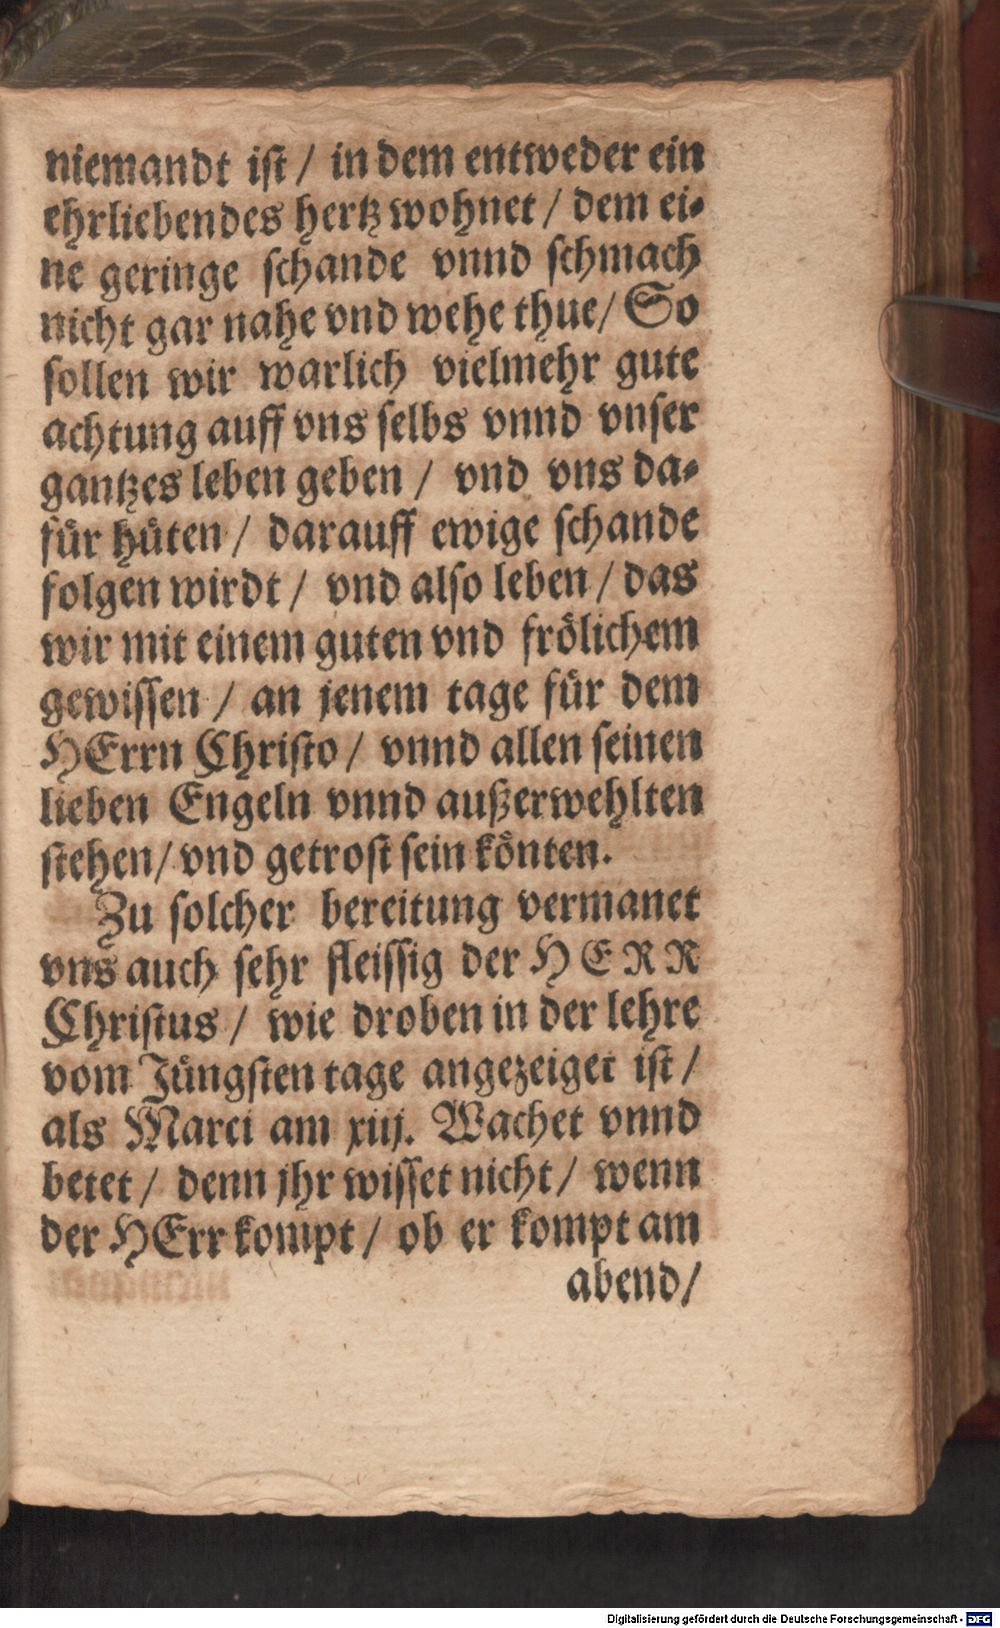 niemandt ist / in dem entweder ein
ehrliebendes hertz wohnet / dem ei-
ne geringe schande vnnd schmach
nicht gar nahe vnd wehe thue / So
sollen wir warlich vielmehr gute
achtung auff vns selbs vnnd vnser
gantzes leben geben / vnd vns da-
für hüten / darauff ewige schande
folgen wirdt / vnd also leben / das
wir mit einem guten vnd frölichem
gewissen / an jenem tage für dem
HErrn Christo / vnnd allen seinen
lieben Engeln vnnd außerwehlten
stehen / vnd getrost sein könten.
Zu solcher bereitung vermanet
vns auch sehr fleissig der HERR
Christus / wie droben in der lehre
vom Jüngsten tage angezeiget ist /
als Marci am xiij. Wachet vnnd
betet / denn jhr wisset nicht / wenn
der HErr kompt / ob er kompt am
abend /
Digitalisierung gefördert durch die Deutsche Forschungsgemeinschaft - DFG